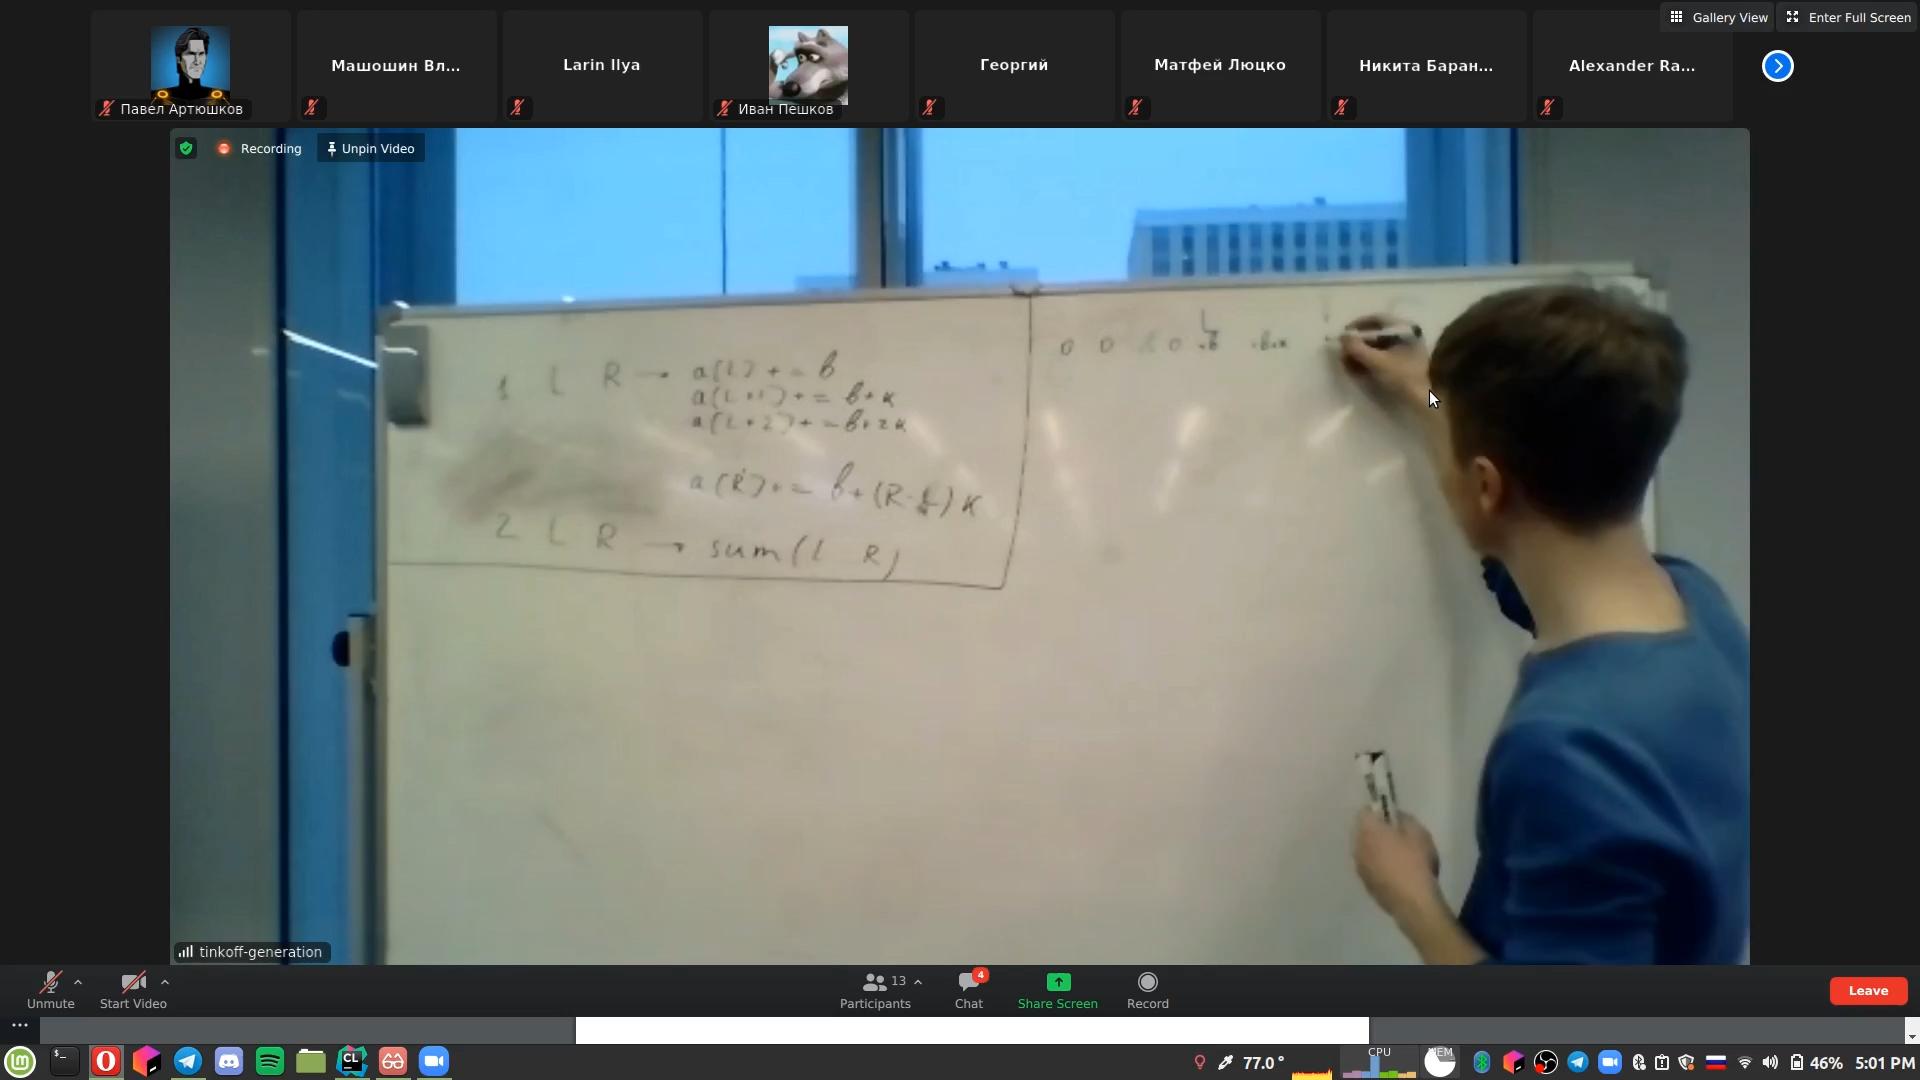 Gallery View
Enter Full Screen
Павел Артюшков
Машошин Вл...
Larin Ilya
Иван Пешков
Георгий
Матфей Люцко
Никита Баран...
Alexander Ra...
Recording
Unpin Video
1 L R → a[L] += b
a[L+1] += b+k
a[L+2] += b+2k
a[R] += b+(R-L)k
2 L R → sum(L R)
L
0 0 0 +b +b+k
tinkoff-generation
Unmute
Start Video
13
Participants
4
Chat
Share Screen
Record
Leave
CL
77.0°
CPU
MEM
46%
5:01 PM